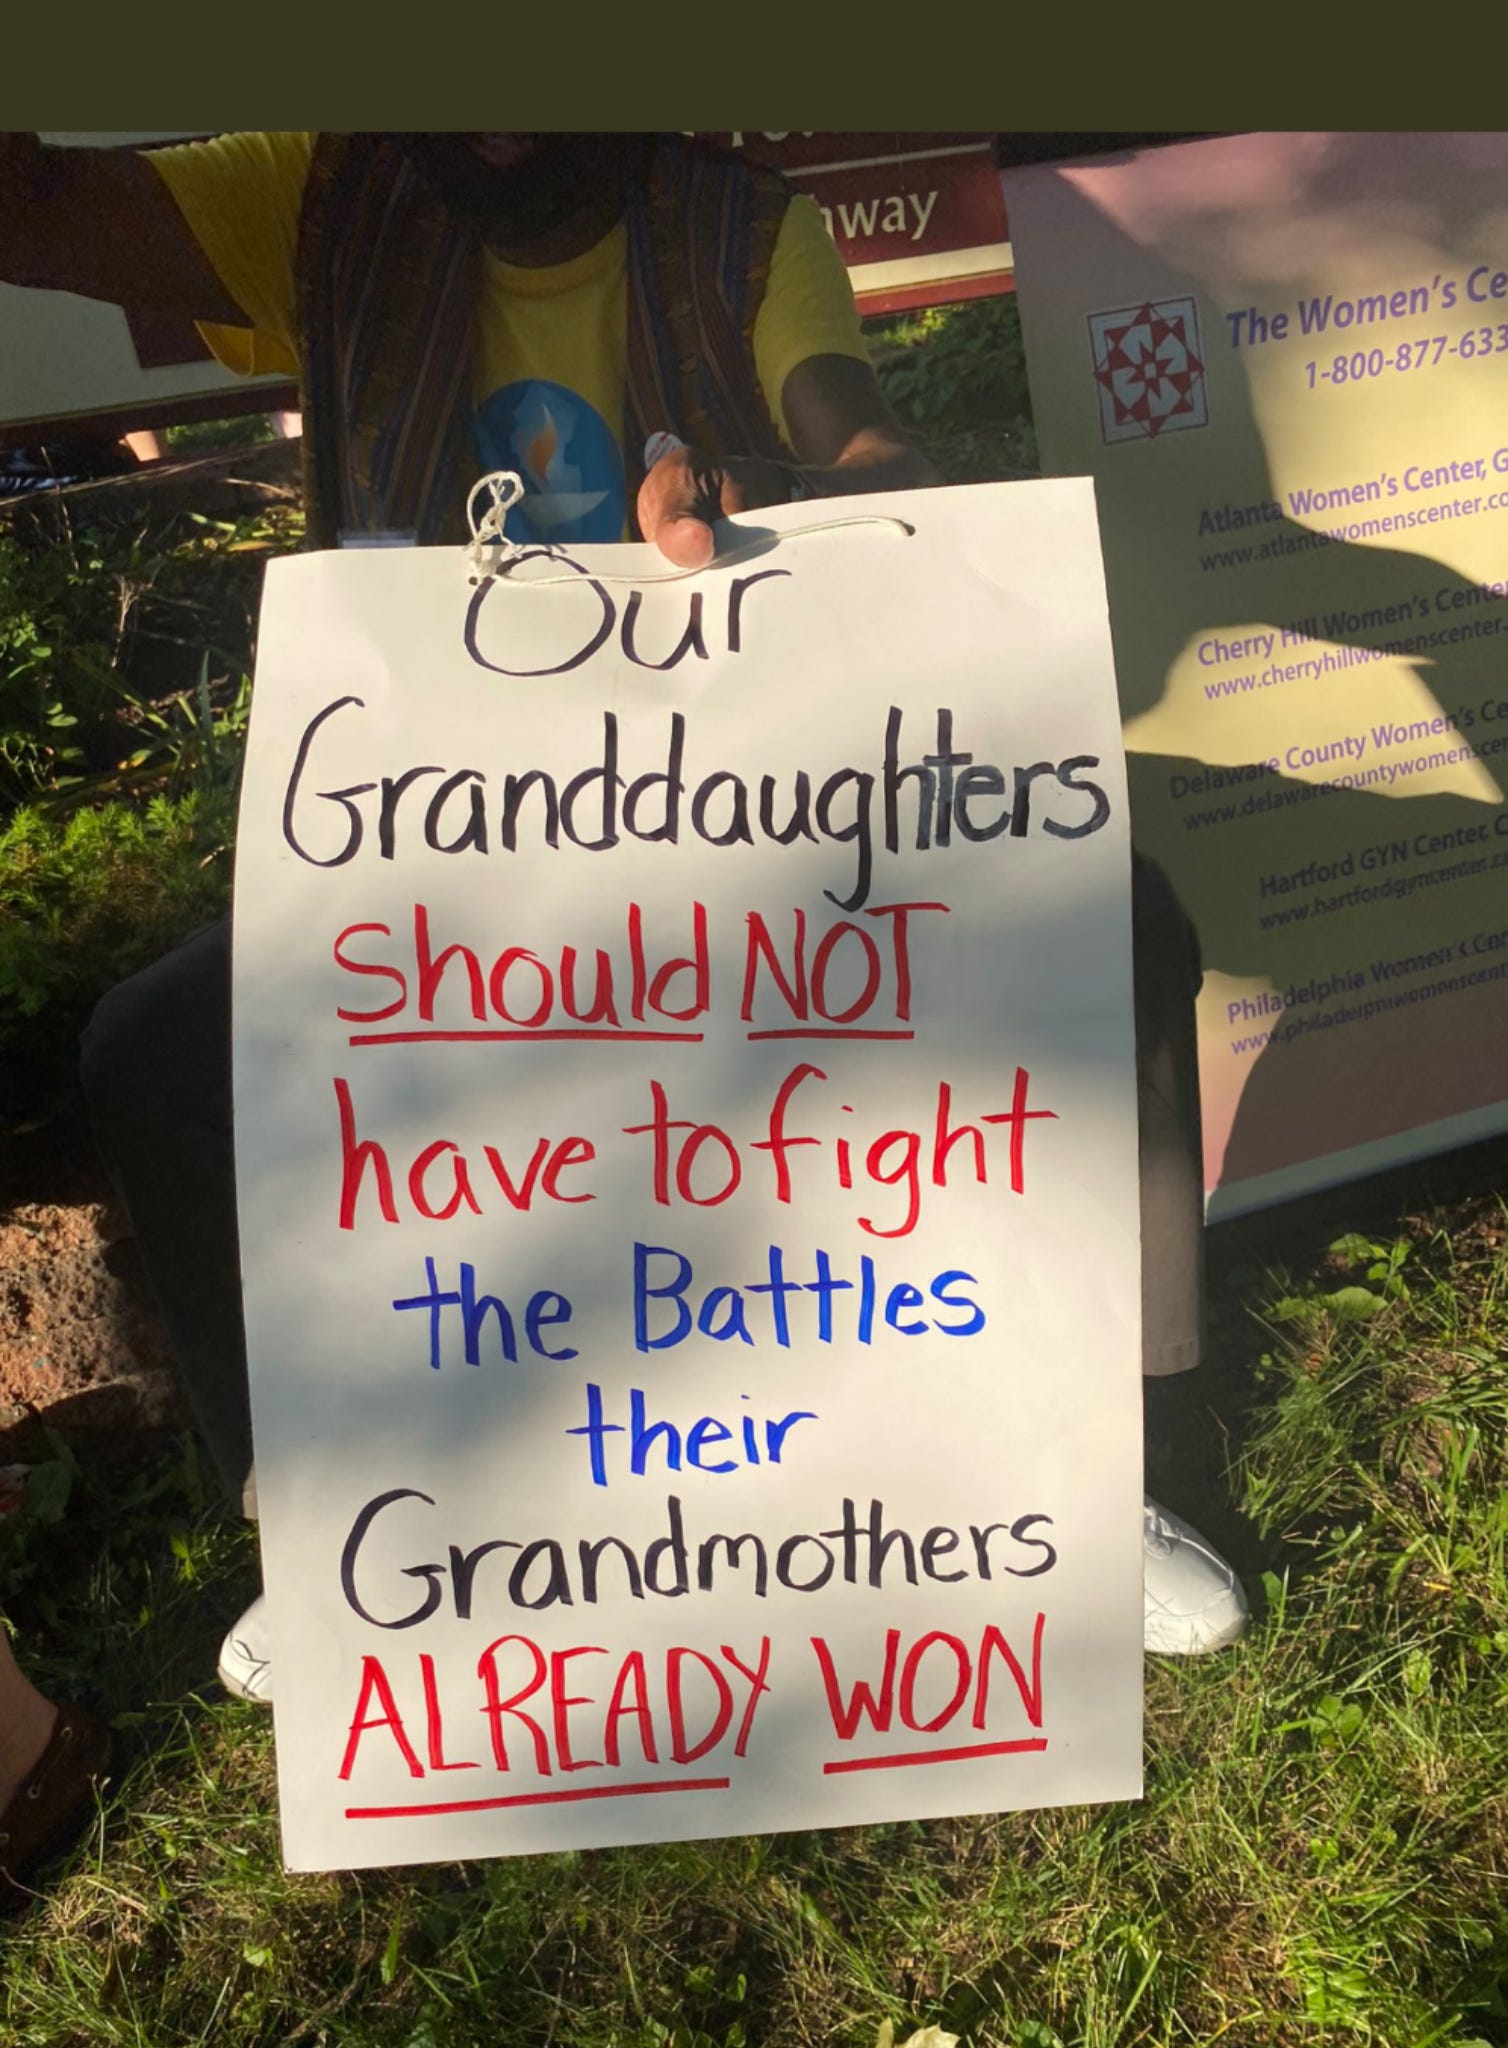 Our
Granddaughters
should NOT
have to fight
the Battles
their
Grandmothers
ALREADY WON
way
The Women's Ce
1-800-877-633
Atlanta Women's Center, G
www.atlantawomenscenter.co
Cherry Hill Women's Center
www.cherryhillwomenscenter.
Delaware County Women's Ce
www.delawarecountywomenscen
Hartford GYN Center, C
www.hartfordgyncenter.co
Philadelphia Women's Cen
www.philadelphiawomenscent